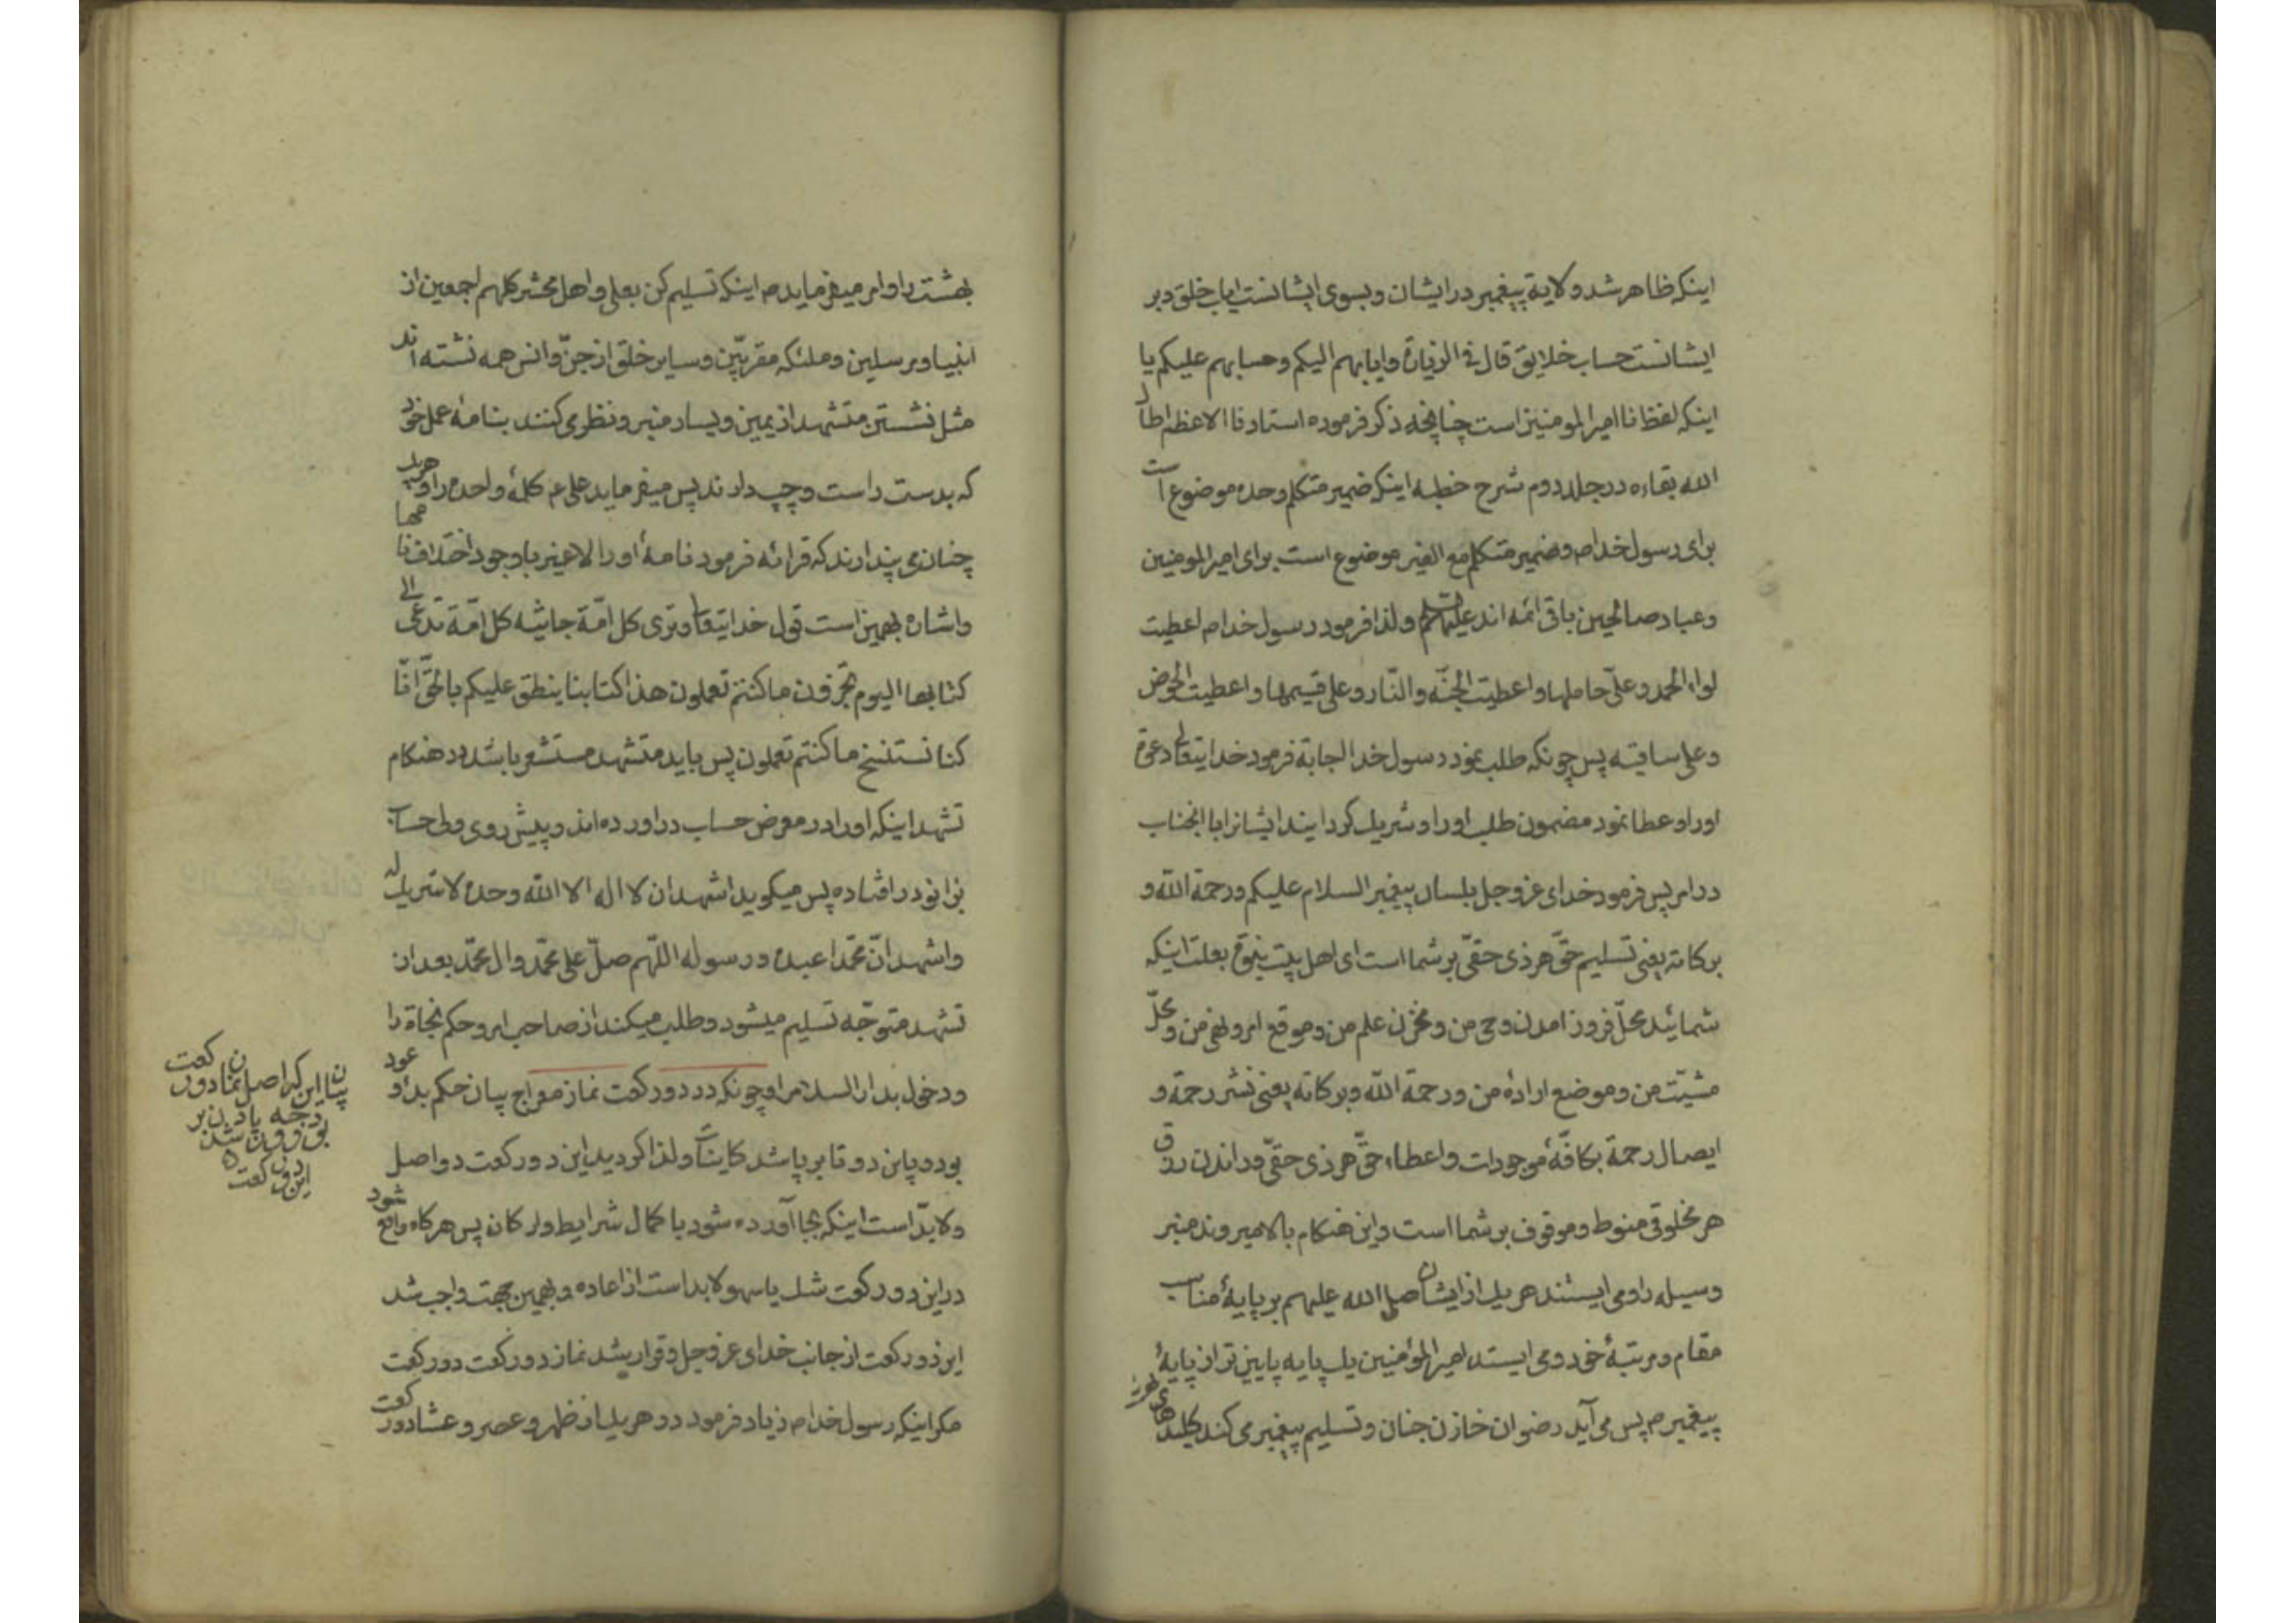 اینکه ظاهر شد ولایة پیغمبر در ایشان و بسوی ایشانست ایاب خلق و بر
ایشانست حساب خلایق قال فی الزیارة و ایابهم الیکم و حسابهم علیکم یا
اینکه لفظ نا امیر المومنین است چنانچه ذکر فرموده استادنا الاعظم اطال
الله بقاءه در جلد دوم شرح خطبه اینکه ضمیر متکلم وحده موضوع است
برای رسول خدا ص و ضمیر متکلم مع الغیر موضوع است برای امیر المومنین
و عباد صالحین باقی ائمه اند علیهم السلم و لذا فرمود رسول خدا ص اعطیت
لواء الحمد و علیّ حاملها و اعطیت الجنّه و النّار و علی قسیمها و اعطیت الحوض
و علی ساقیه پس چونکه طلب نمود رسول خدا اجابة فرمود خدایتعالی دعوة
او را و عطا نمود مضمون طلب او را و شریک گردانید ایشانرا با انجناب
در امر پس فرمود خدای عز و جل بلسان پیغمبر السلام علیکم و رحمة الله و
برکاته یعنی تسلیم حقّ هر ذی حقّی بر شما است ای اهل بیت نبوّة بعلت اینکه
شمائید محلّ فرود امدن وحی من و مخزن علم من و موقع امر و نهی من و محلّ
مشیّت من و موضع ارادهٔ من و رحمة الله و برکاته یعنی نشر رحمة و
ایصال رحمة بکافّهٔ موجودات و اعطاء حقّ هر ذی حقّی و راندن رزق
هر مخلوقی منوط و موقوف بر شما است و این هنکام بالا میروند منبر
وسیله را و می ایستند هر یک از ایشان صلی الله علیهم بر پایهٔ مناسب
مقام و مرتبهٔ خود و می ایستد امیر المؤمنین یک پایه پایین تر از پایهٔ
پیغمبر ص پس می آید رضوان خازن جنان و تسلیم پیغمبر می کند کلیدهای
بهشت را و امر میفرماید ص اینکه تسلیم کن بعلی و اهل محشر کلهم اجمعین از
انبیا و مرسلین و ملئکه مقربّین و سایر خلق از جنّ و انس همه نشسته اند
مثل نشستن متشهد از یمین و یسار منبر و نظر می کنند بنامهٔ عمل خود
که بدست راست و چپ دارند پس میفرماید علی ع کلمهٔ واحده را و هر یک
چنان می پندارند که قرائه فرمود نامهٔ او را لا غیر با وجود اختلاف نامها
و اشاره بهمین است قول خدایتعالی و تری کل امّة جاثیه کل امّة تدعی الی
کتابها الیوم تجزون ما کنتم تعملون هذا کتابنا ینطق علیکم بالحقّ انّا
کنا نستنسخ ما کنتم تعملون پس باید متشهد مستشعر باشد در هنکام
تشهد اینکه او را در معرض حساب در اورده اند و پیش روی ولی حساب
بزانو در افتاده پس میکوید اشهد ان لا اله الا الله وحده لا شریک له
و اشهد انّ محمّدا عبده و رسوله اللّهم صلّ علی محمّد و ال محمّد بعد از
تشهد متوجّه تسلیم میشود و طلب میکند از صاحب امر و حکم نجاة را
و دخول بدار السلام را و چونکه در دو رکعت نماز معراج بیان حکم بدؤ و عود
بود و باین دو تا بر پا شد کاینات و لذا کردید این دو رکعت دو اصل
و لابدّ است اینکه بجا آورده شود با کمال شرایط و ارکان پس هرکاه واقع شود
در این دو رکعت شک یا سهو لابد است از اعاده و بهمین جهت واجب شد
این دو رکعت از جانب خدای عز و جل و قرار شد نماز دو رکعت دو رکعت
مکر اینکه رسول خدا ص زیاد فرمود در هر یک از ظهر و عصر و عشا دو رکعت
بیان این که اصل نماز دو رکعت
این دو رکعت